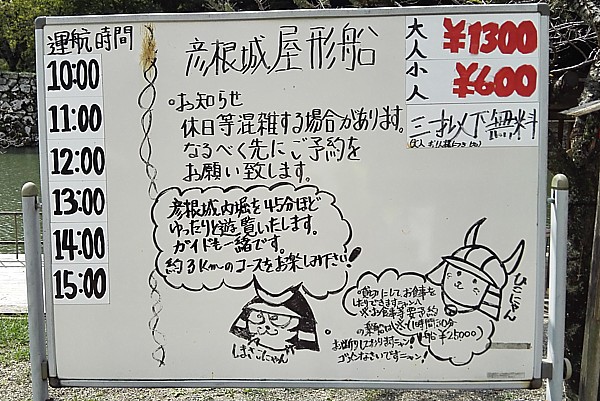 運航時間
10:00
11:00
12:00
13:00
14:00
15:00
彦根城屋形船
大人 ¥1300
小人 ¥600
三才以下無料
お知らせ
休日等混雑する場合があります。
なるべく先にご予約を
お願い致します。
彦根城内堀を45分ほど
ゆったりと遊覧いたします。
ガイドも一緒です。
約3kmのコースをお楽しみ下さい!
しまさこにゃん
ひこにゃん
貸切にして、お食事を
※お食事等要予約
の乗船は※1時間30分
¥25000)
ゴメンなさいですニャン!